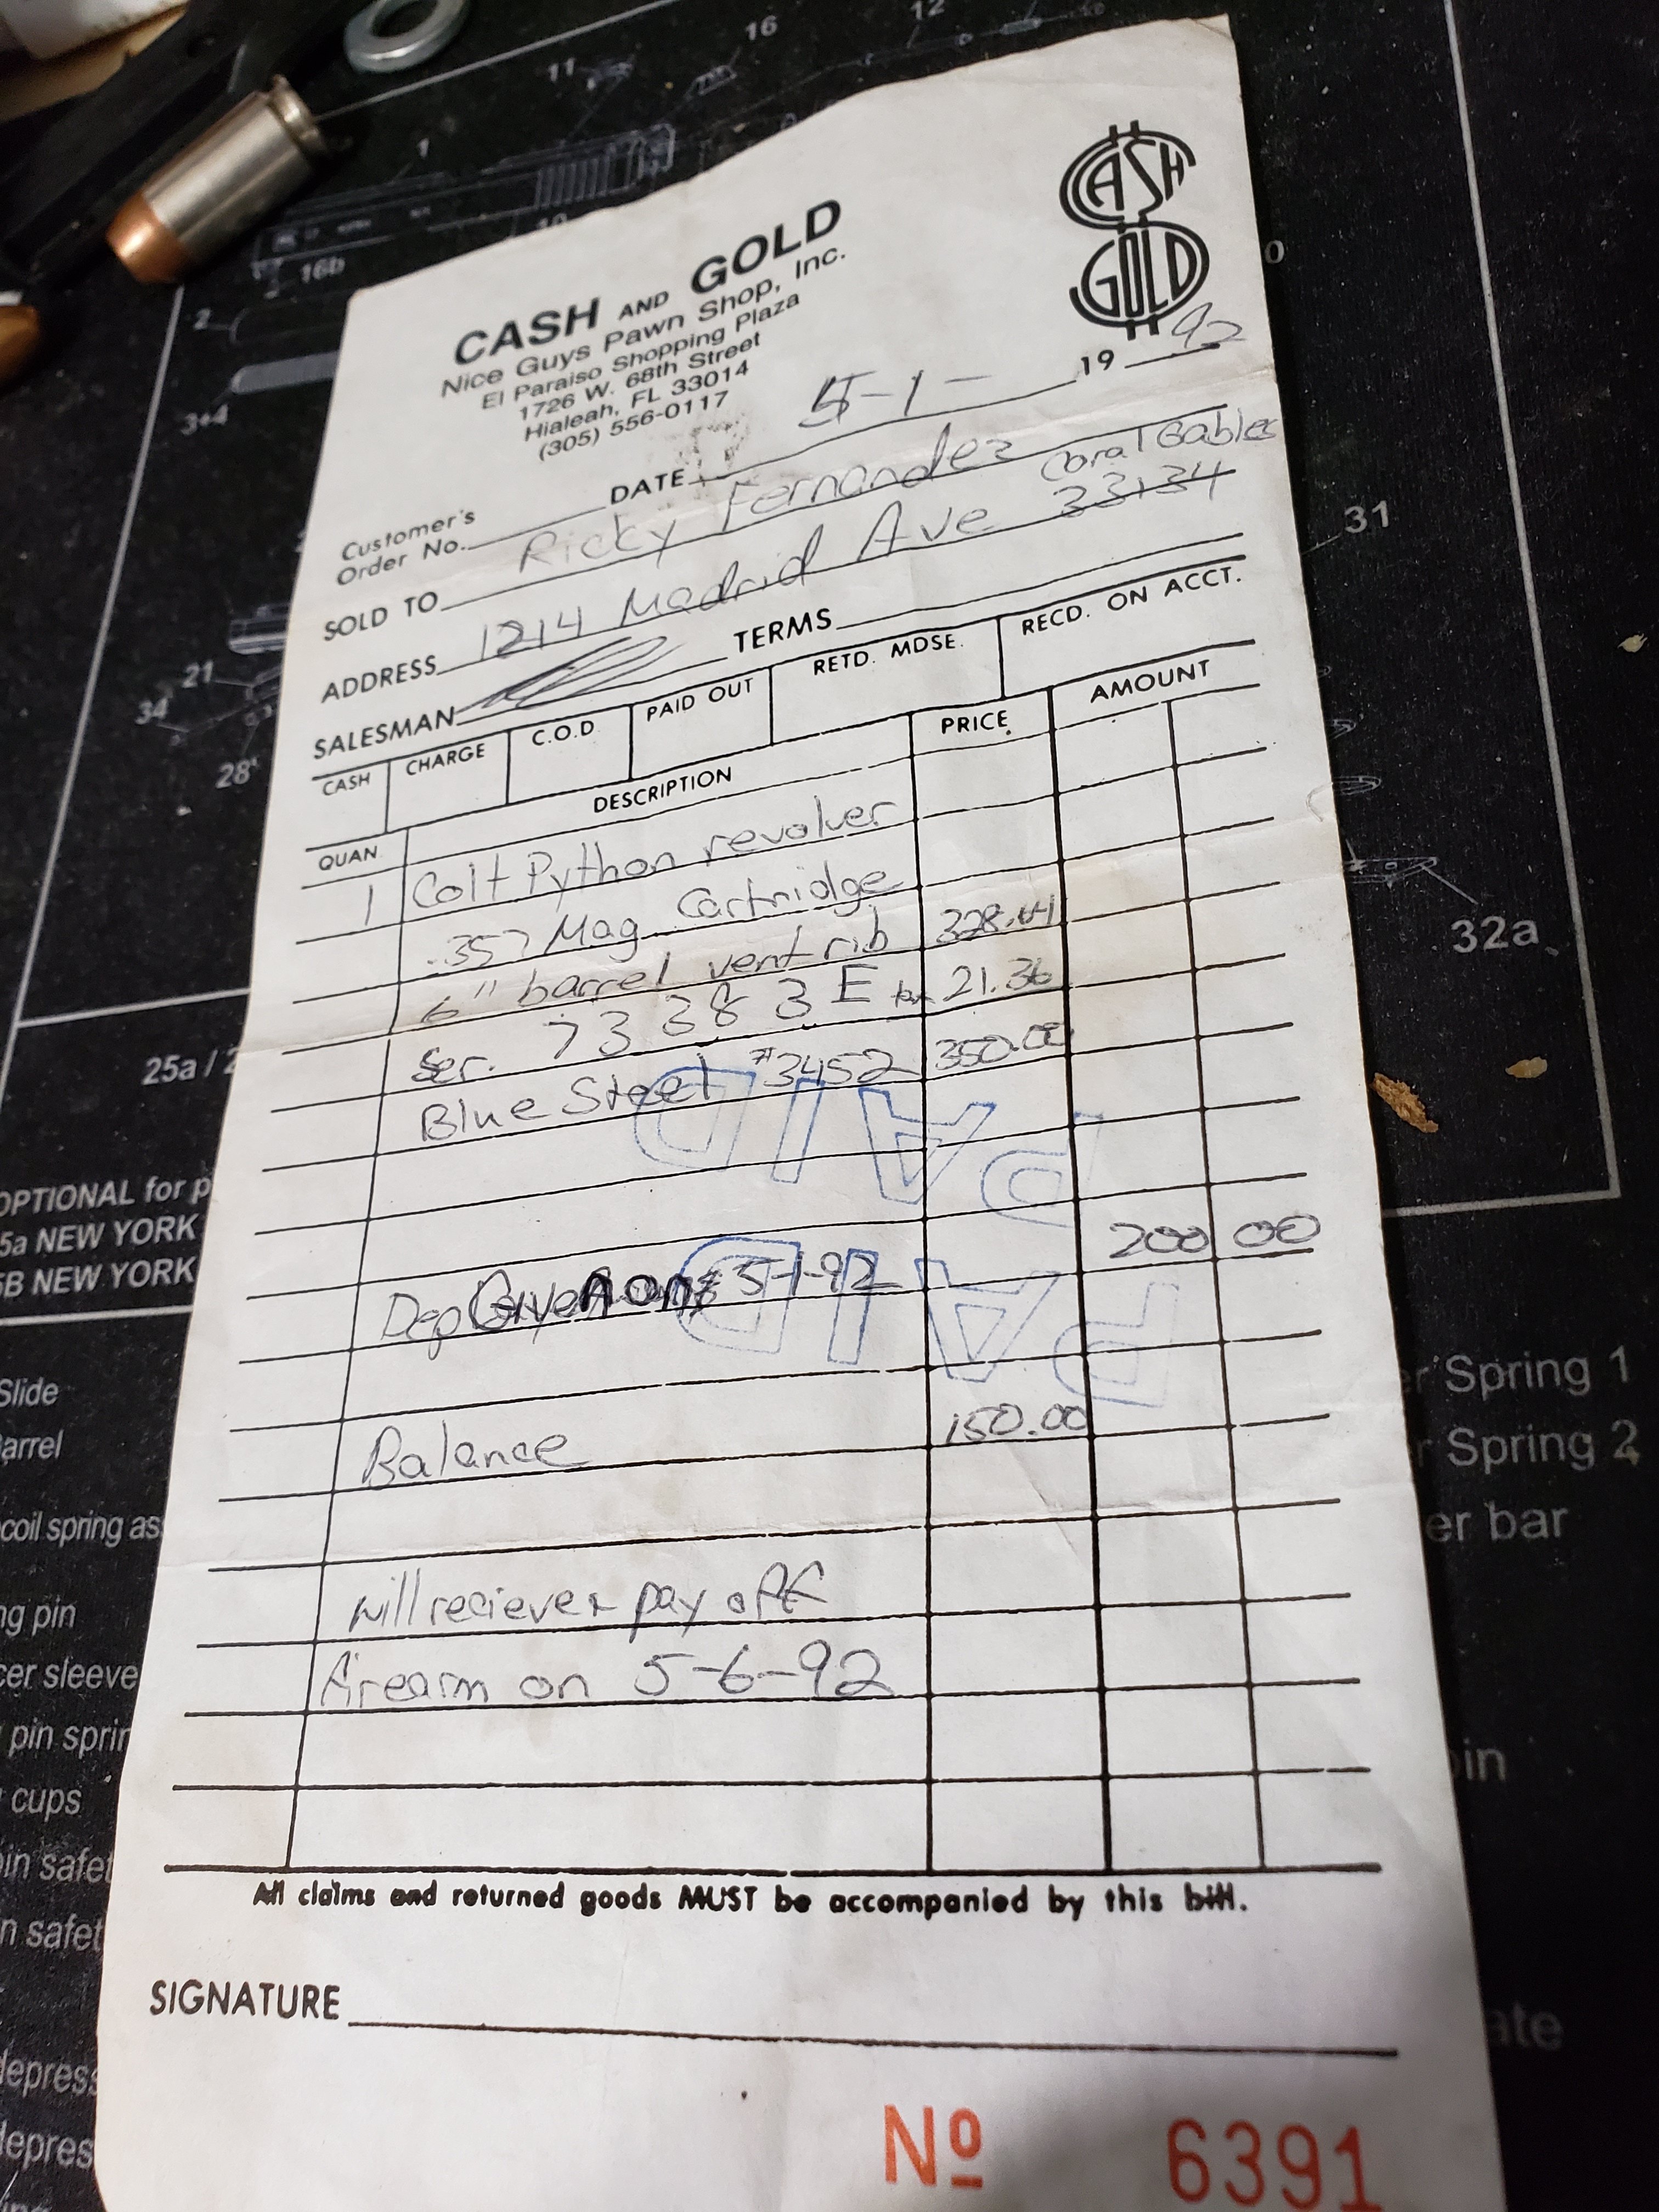 CASH AND GOLD
Nice Guys Pawn Shop, Inc.
El Paraiso Shopping Plaza
1726 W. 68th Street
Hialeah, FL 33014
(305) 556-0117
CASH
GOLD
DATE 5-1- 19 92
Customer's
Order No.
SOLD TO Ricky Fernandez
Coral Gables
ADDRESS 1214 Madrid Ave 33134
SALESMAN TERMS
CASH CHARGE C.O.D PAID OUT RETD. MDSE. RECD. ON ACCT.
QUAN. DESCRIPTION PRICE AMOUNT
1 Colt Python revolver
.357 Mag Cartridge
6" barrel vent rib 328.64
Ser. 73383E tax 21.36
Blue Steel #3452 350.00
PAID
Dep Given on 5-1-92 200 00
PAID
Balance 150.00
will reciever pay off
firearm on 5-6-92
All claims and returned goods MUST be accompanied by this bill.
SIGNATURE
No 6391
11
16
12
1
10
16b
2
3+4
31
21
34
28
32a
25a / 2
OPTIONAL for p
5a NEW YORK
5B NEW YORK
Slide
arrel
coil spring as
ng pin
cer sleeve
pin sprin
cups
in safet
n safet
depress
depres
er Spring 1
r Spring 2
er bar
in
ate